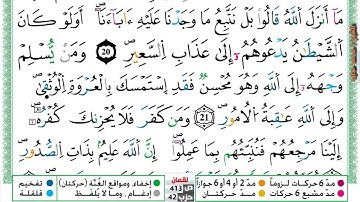 مَآ أَنزَلَ ٱللَّهُ قَالُوا۟ بَلْ نَتَّبِعُ مَا وَجَدْنَا عَلَيْهِ ءَابَآءَنَآ ۚ أَوَلَوْ كَانَ
ٱلشَّيْطَـٰنُ يَدْعُوهُمْ إِلَىٰ عَذَابِ ٱلسَّعِيرِ 20 وَمَن يُسْلِمْ
وَجْهَهُۥٓ إِلَى ٱللَّهِ وَهُوَ مُحْسِنٌ فَقَدِ ٱسْتَمْسَكَ بِٱلْعُرْوَةِ ٱلْوُثْقَىٰ ۗ
وَإِلَى ٱللَّهِ عَـٰقِبَةُ ٱلْأُمُورِ 21 وَمَن كَفَرَ فَلَا يَحْزُنكَ كُفْرُهُۥٓ ۚ
إِلَيْنَا مَرْجِعُهُمْ فَنُنَبِّئُهُم بِمَا عَمِلُوٓا۟ ۚ إِنَّ ٱللَّهَ عَلِيمٌۢ بِذَاتِ ٱلصُّدُورِ
مدّ 6 حركات لزوماً مدّ 2 أو 4 أو 6 جوازاً لقمان ص 413 حزب 42 إخفاء، ومواقع الغُنَّة (حركتان) تفخيم
مدّ مشبع 6 حركات مدّ حركتان إدغام، وما لا يُلفَظ قلقلة